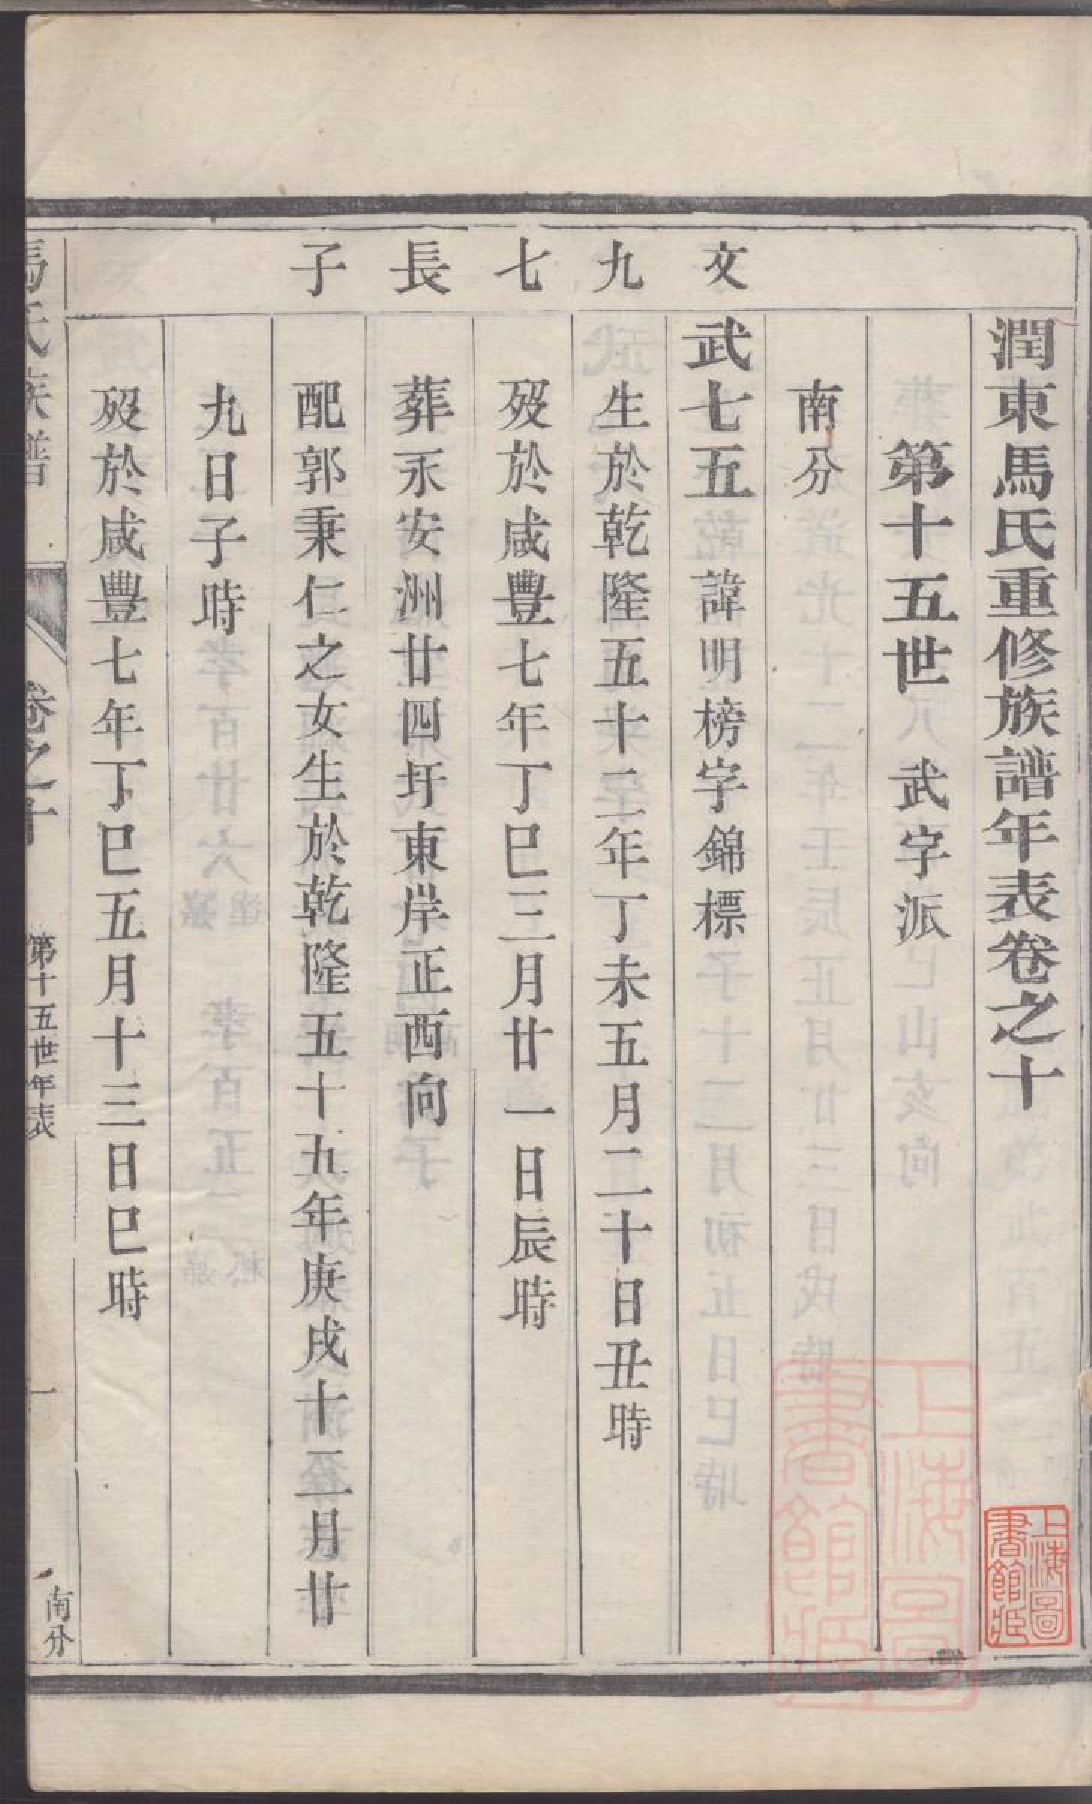 潤東馬氏重修族譜年表卷之十
第十五世 武字派
南分
文九七長子
武七五 諱明榜字錦標
生於乾隆五十二年丁未五月二十日丑時
歿於咸豐七年丁巳三月廿一日辰時
葬永安洲廿四圩東岸正西向
配郭秉仁之女生於乾隆五十五年庚戌十二月廿
九日子時
歿於咸豐七年丁巳五月十三日巳時
馬氏族譜 卷之十 第十五世年表 一 南分
上海圖書館藏
上海圖書館藏